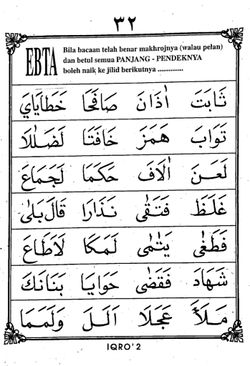 ٣٢
EBTA
Bila bacaan telah benar makhrojnya (walau pelan)
dan betul semua PANJANG - PENDEKNYA
boleh naik ke jilid berikutnya .............
ثَابَتَ اَذَانَ صَافَحَا خَطَايَاي
تَوَابَ هَمَزَ خَافَتَا لَضَلٰلَا
لَعَنَ اَلَافَ حَكَمَا لَجَمَاعَ
غَلَظَ فَتَقٰى نَذَارَا قَالَ بَلٰى
فَطَغٰى يَتٰمٰى لَمَكَا لَاَطَاعَ
شَهَادَ فَقَضٰى حَوَايَا بَنَانَكَ
مَلَاَ عَجَلَا اَلَلَ وَلَمَمَا
IQRO' 2